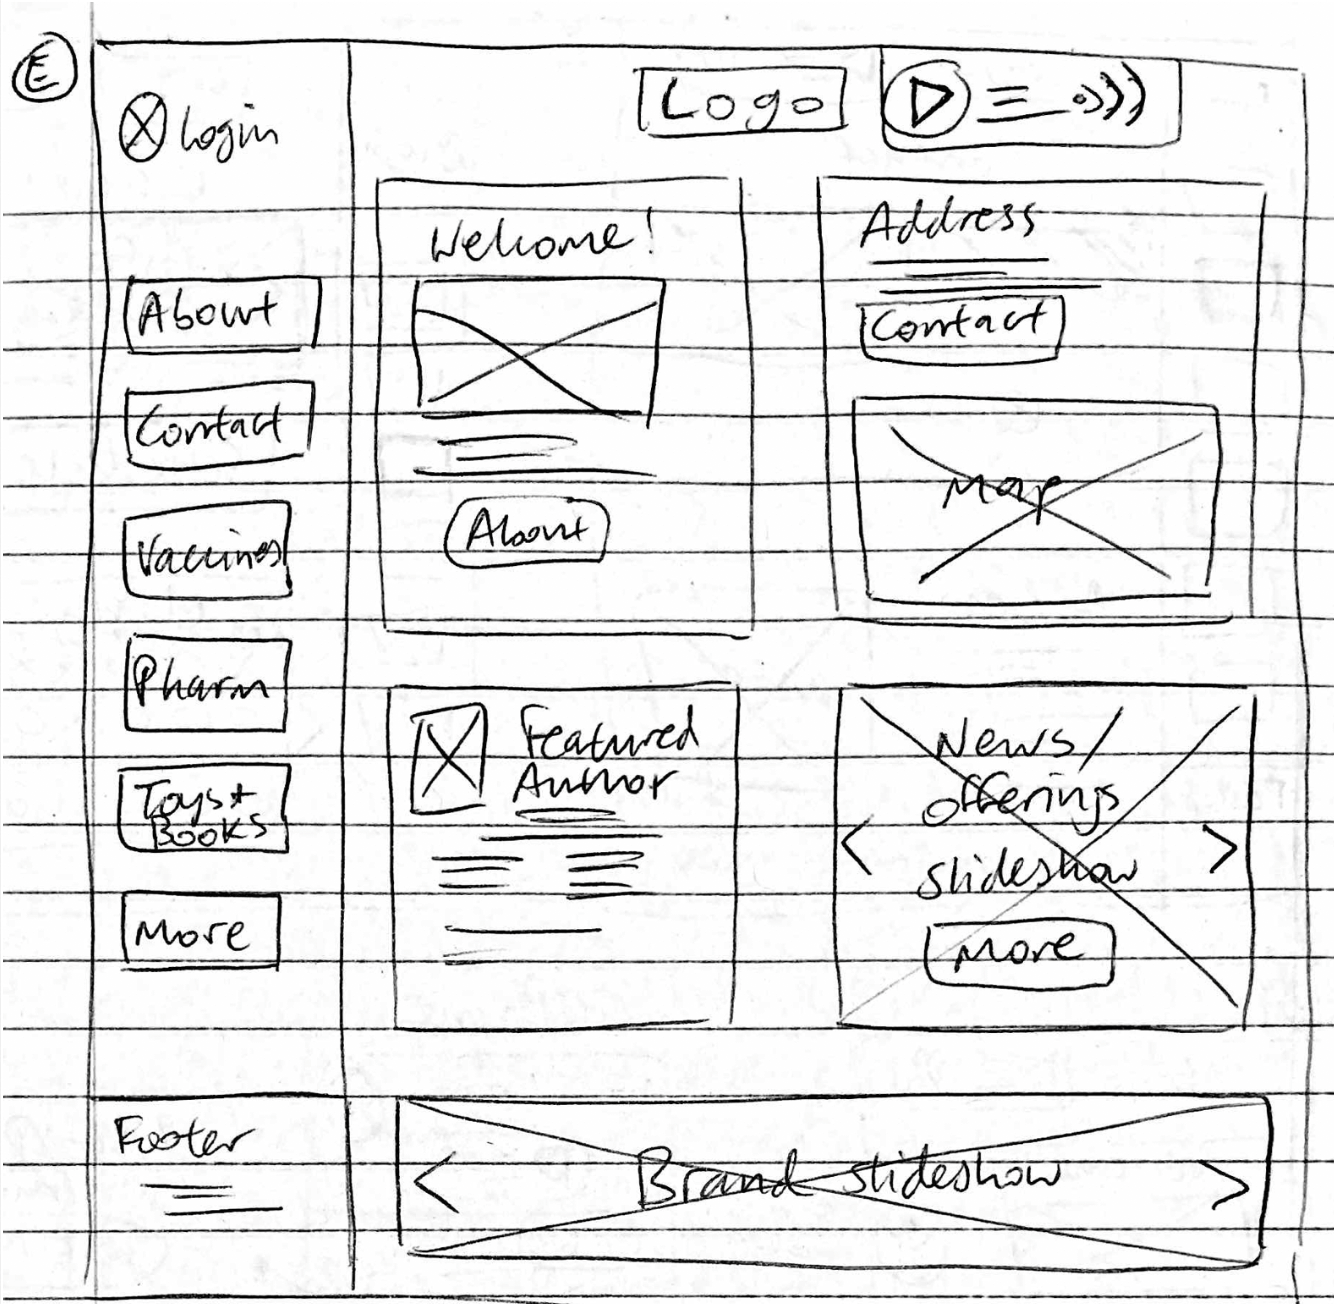 E
Login
Logo
About
Contact
Vaccines
Pharm
Toys +
Books
More
Footer
Welcome!
About
Address
Contact
Map
Featured
Author
News/
offerings
slideshow
More
Brand slideshow